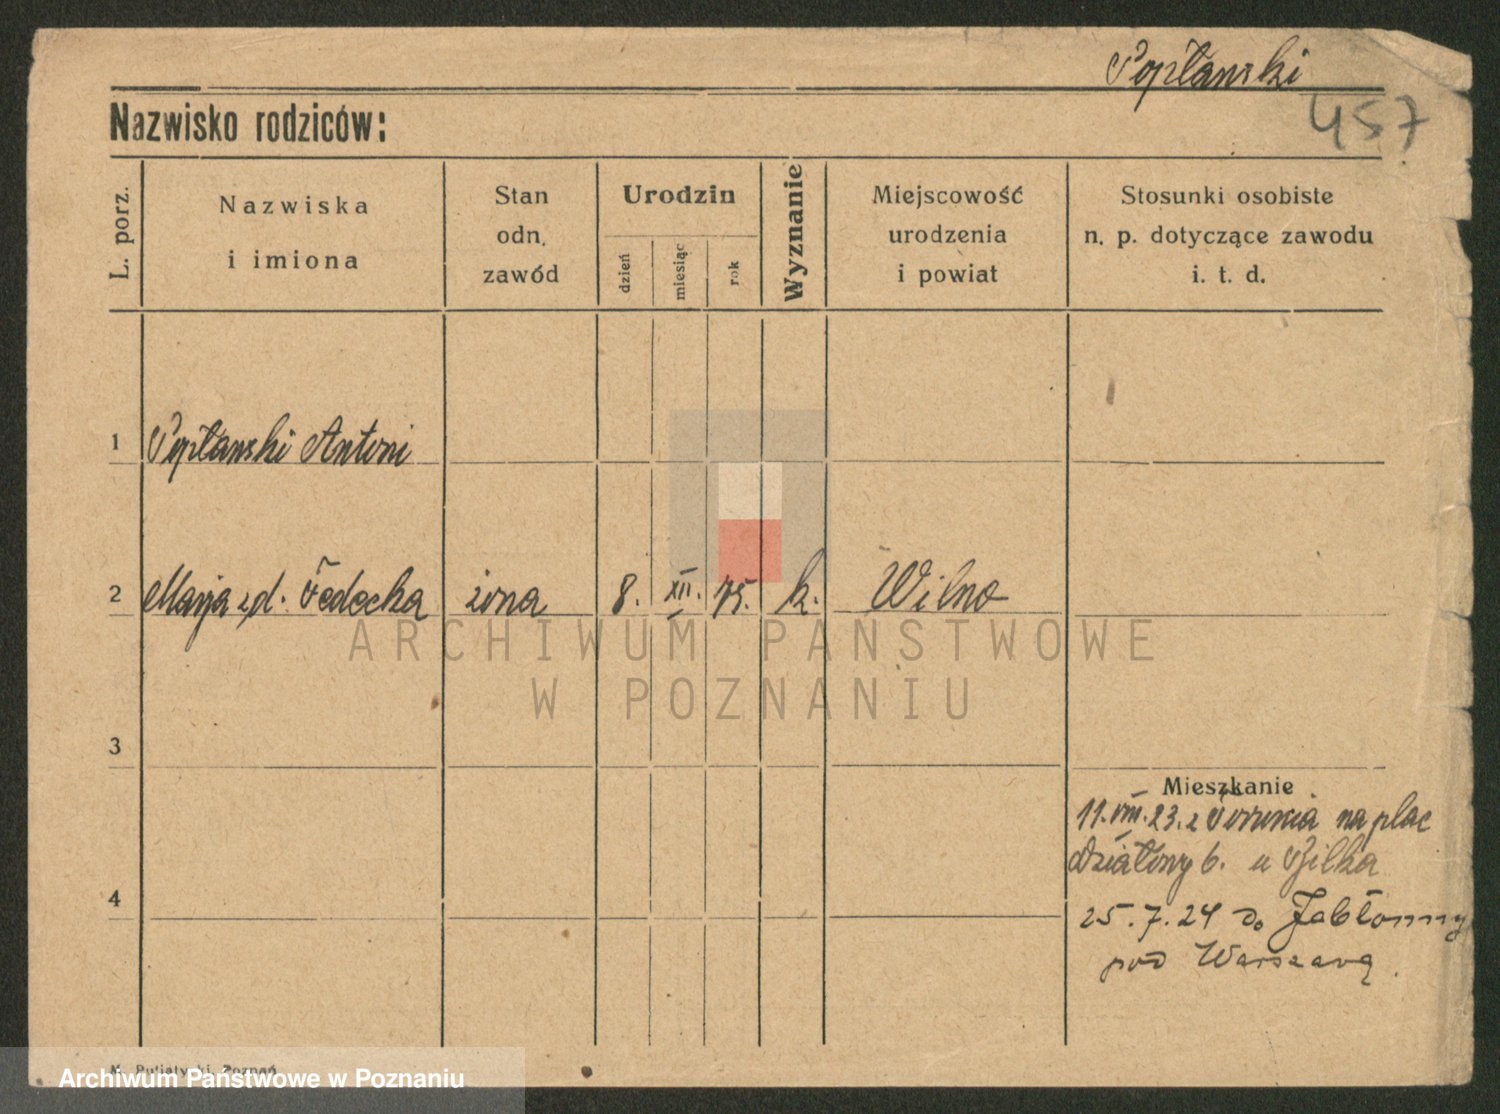 Popławski
457
Nazwisko rodziców:
L. porz.
Nazwiska
i imiona
Stan
odn.
zawód
Urodzin
dzień
miesiąc
rok
Wyznanie
Miejscowość
urodzenia
i powiat
Stosunki osobiste
n. p. dotyczące zawodu
i. t. d.
1 Popławski Antoni
2 Marja zd. Fedecka żona 8. XII. 75. k. Wilno
ARCHIWUM PAŃSTWOWE
W POZNANIU
3
Mieszkanie
11.VIII.23. z Torunia na plac
działowy 6. u Bilka
4
25.7.24 do Jabłonny
pod Warszawą.
Poznań
Archiwum Państwowe w Poznaniu